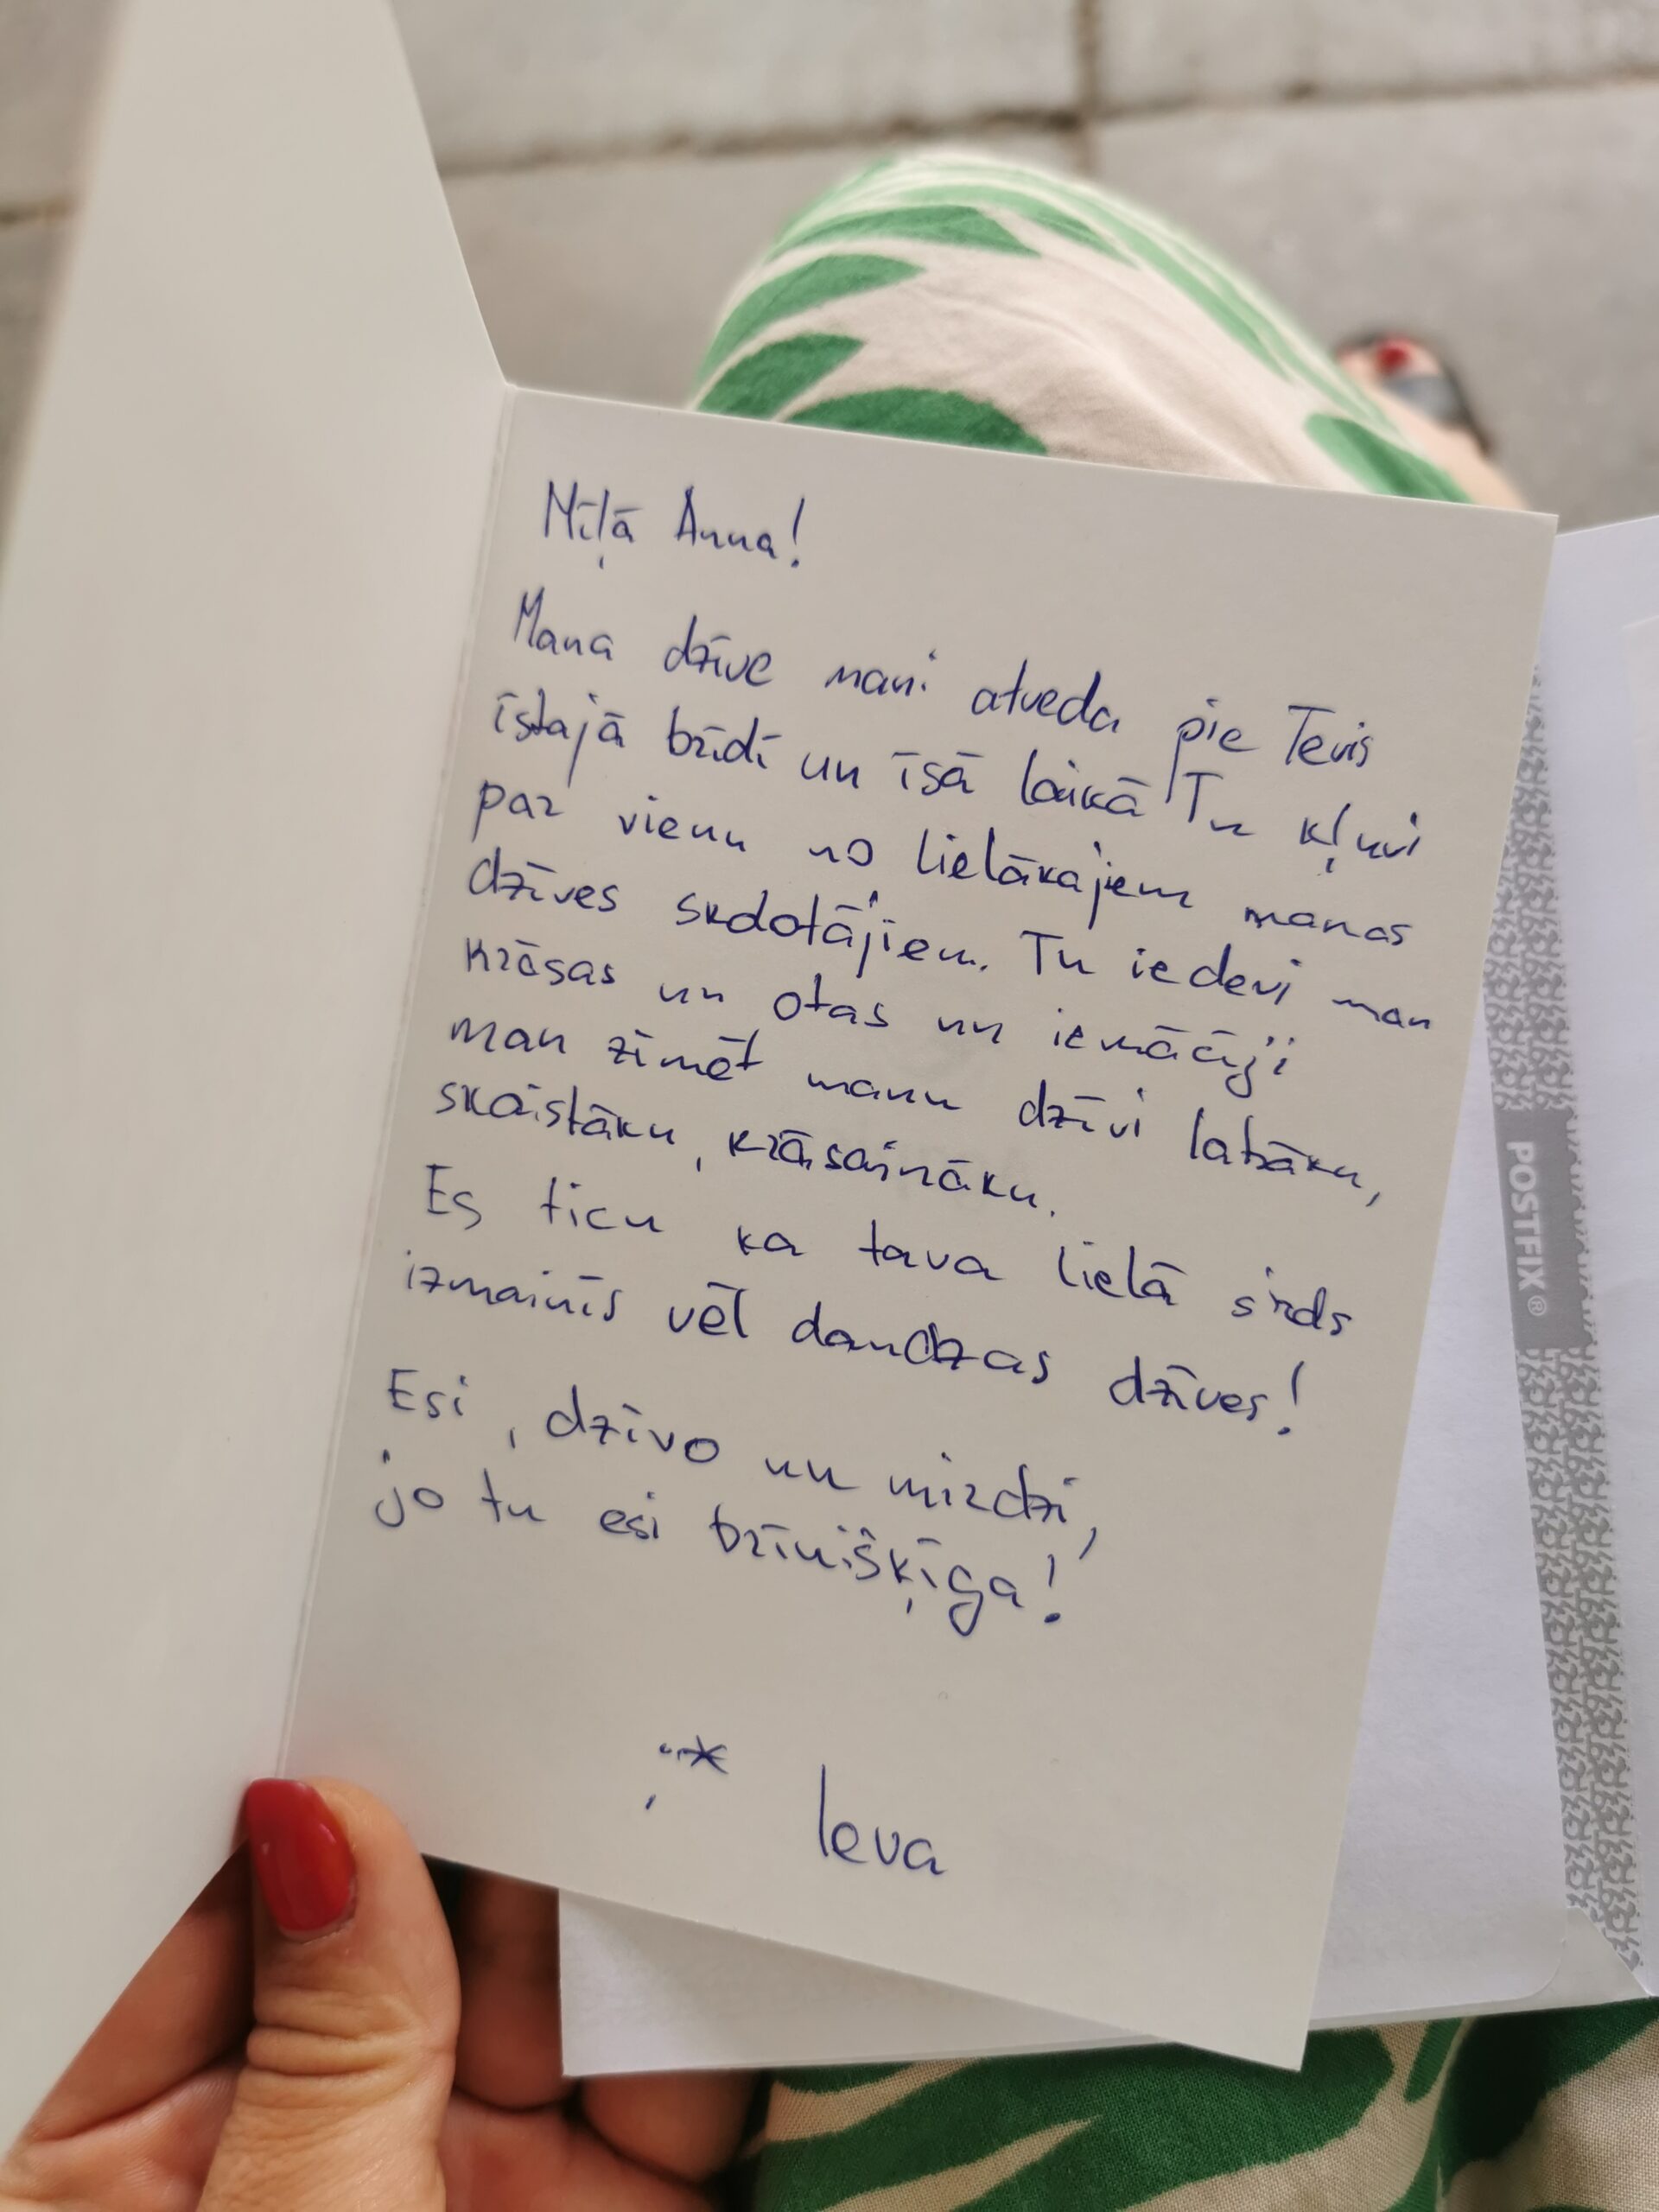 Mīļā Anna!
Mana dzīve mani atveda pie Tevis
īstajā brīdī un īsā laikā Tu kļuvi
par vienu no lielākajiem manas
dzīves skdotājiem. Tu iedevi man
krāsas un otas un iemācīji
man zīmēt manu dzīvi labāku,
skaistāku, krāsaināku.
Es ticu ka tava lielā sirds
izmainīs vēl daudzas dzīves!
Esi, dzīvo un mirdzi,
jo tu esi brīnišķīga!
;* Ieva
POSTFIX ®